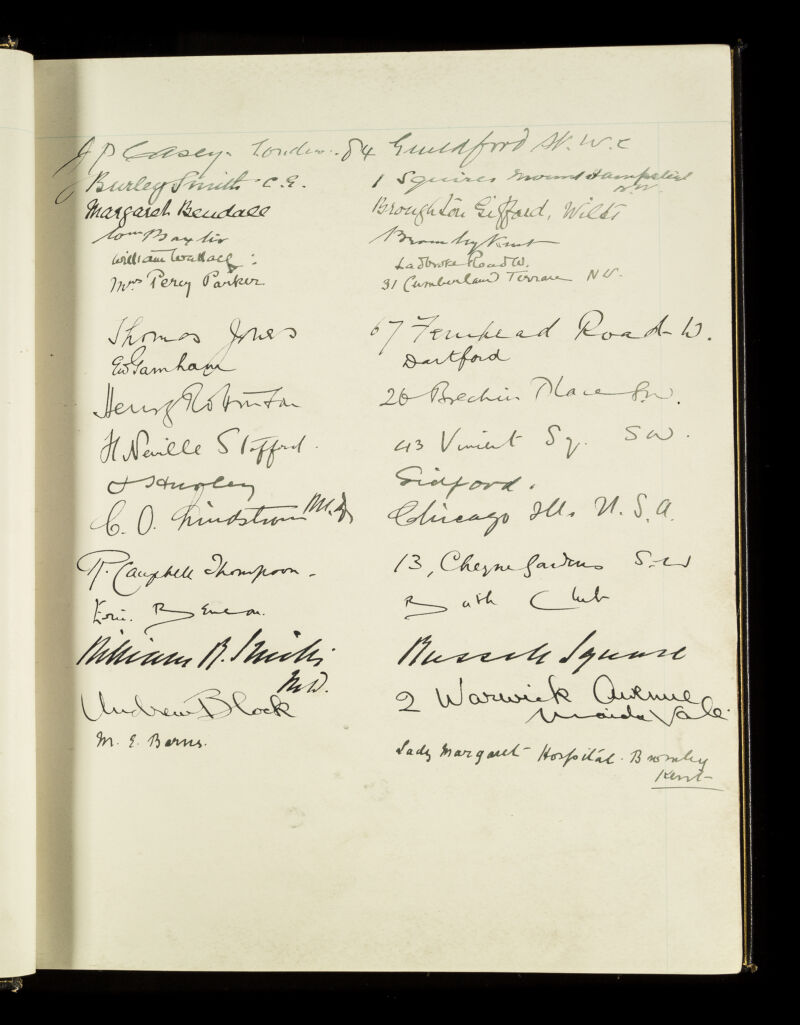 J P Casey. London. 84 Guildford St. W.C
Burley Smith C.E. 1 Squires Mount Hampstead
N.W.
Margaret Bendall Broughton Gifford, Wilts
Wm Baxter Bromley Kent
William Wallace: Ladbroke Road W.
Mrs Percy Parker 31 Cumberland Terrace N W.
Thomas Jones 67 Fernhead Road W.
Garnham Dartford
Henry Robinson 26 Brechin Place S.W.
H Neville Stafford. 43 Vincent Sq. S W.
Hurley Sidford.
C. O. Lindstrom M.D Chicago Ills U.S.A.
R. Campbell Thompson. 13, Cheyne Gardens S.W
Eric Benson. Bath Club
William R. Smith Russell Square
M.D.
Andrew Block 2 Warwick Avenue
Maida Vale.
M. E. Berns. Lady Margaret Hospital. Bromley
Kent